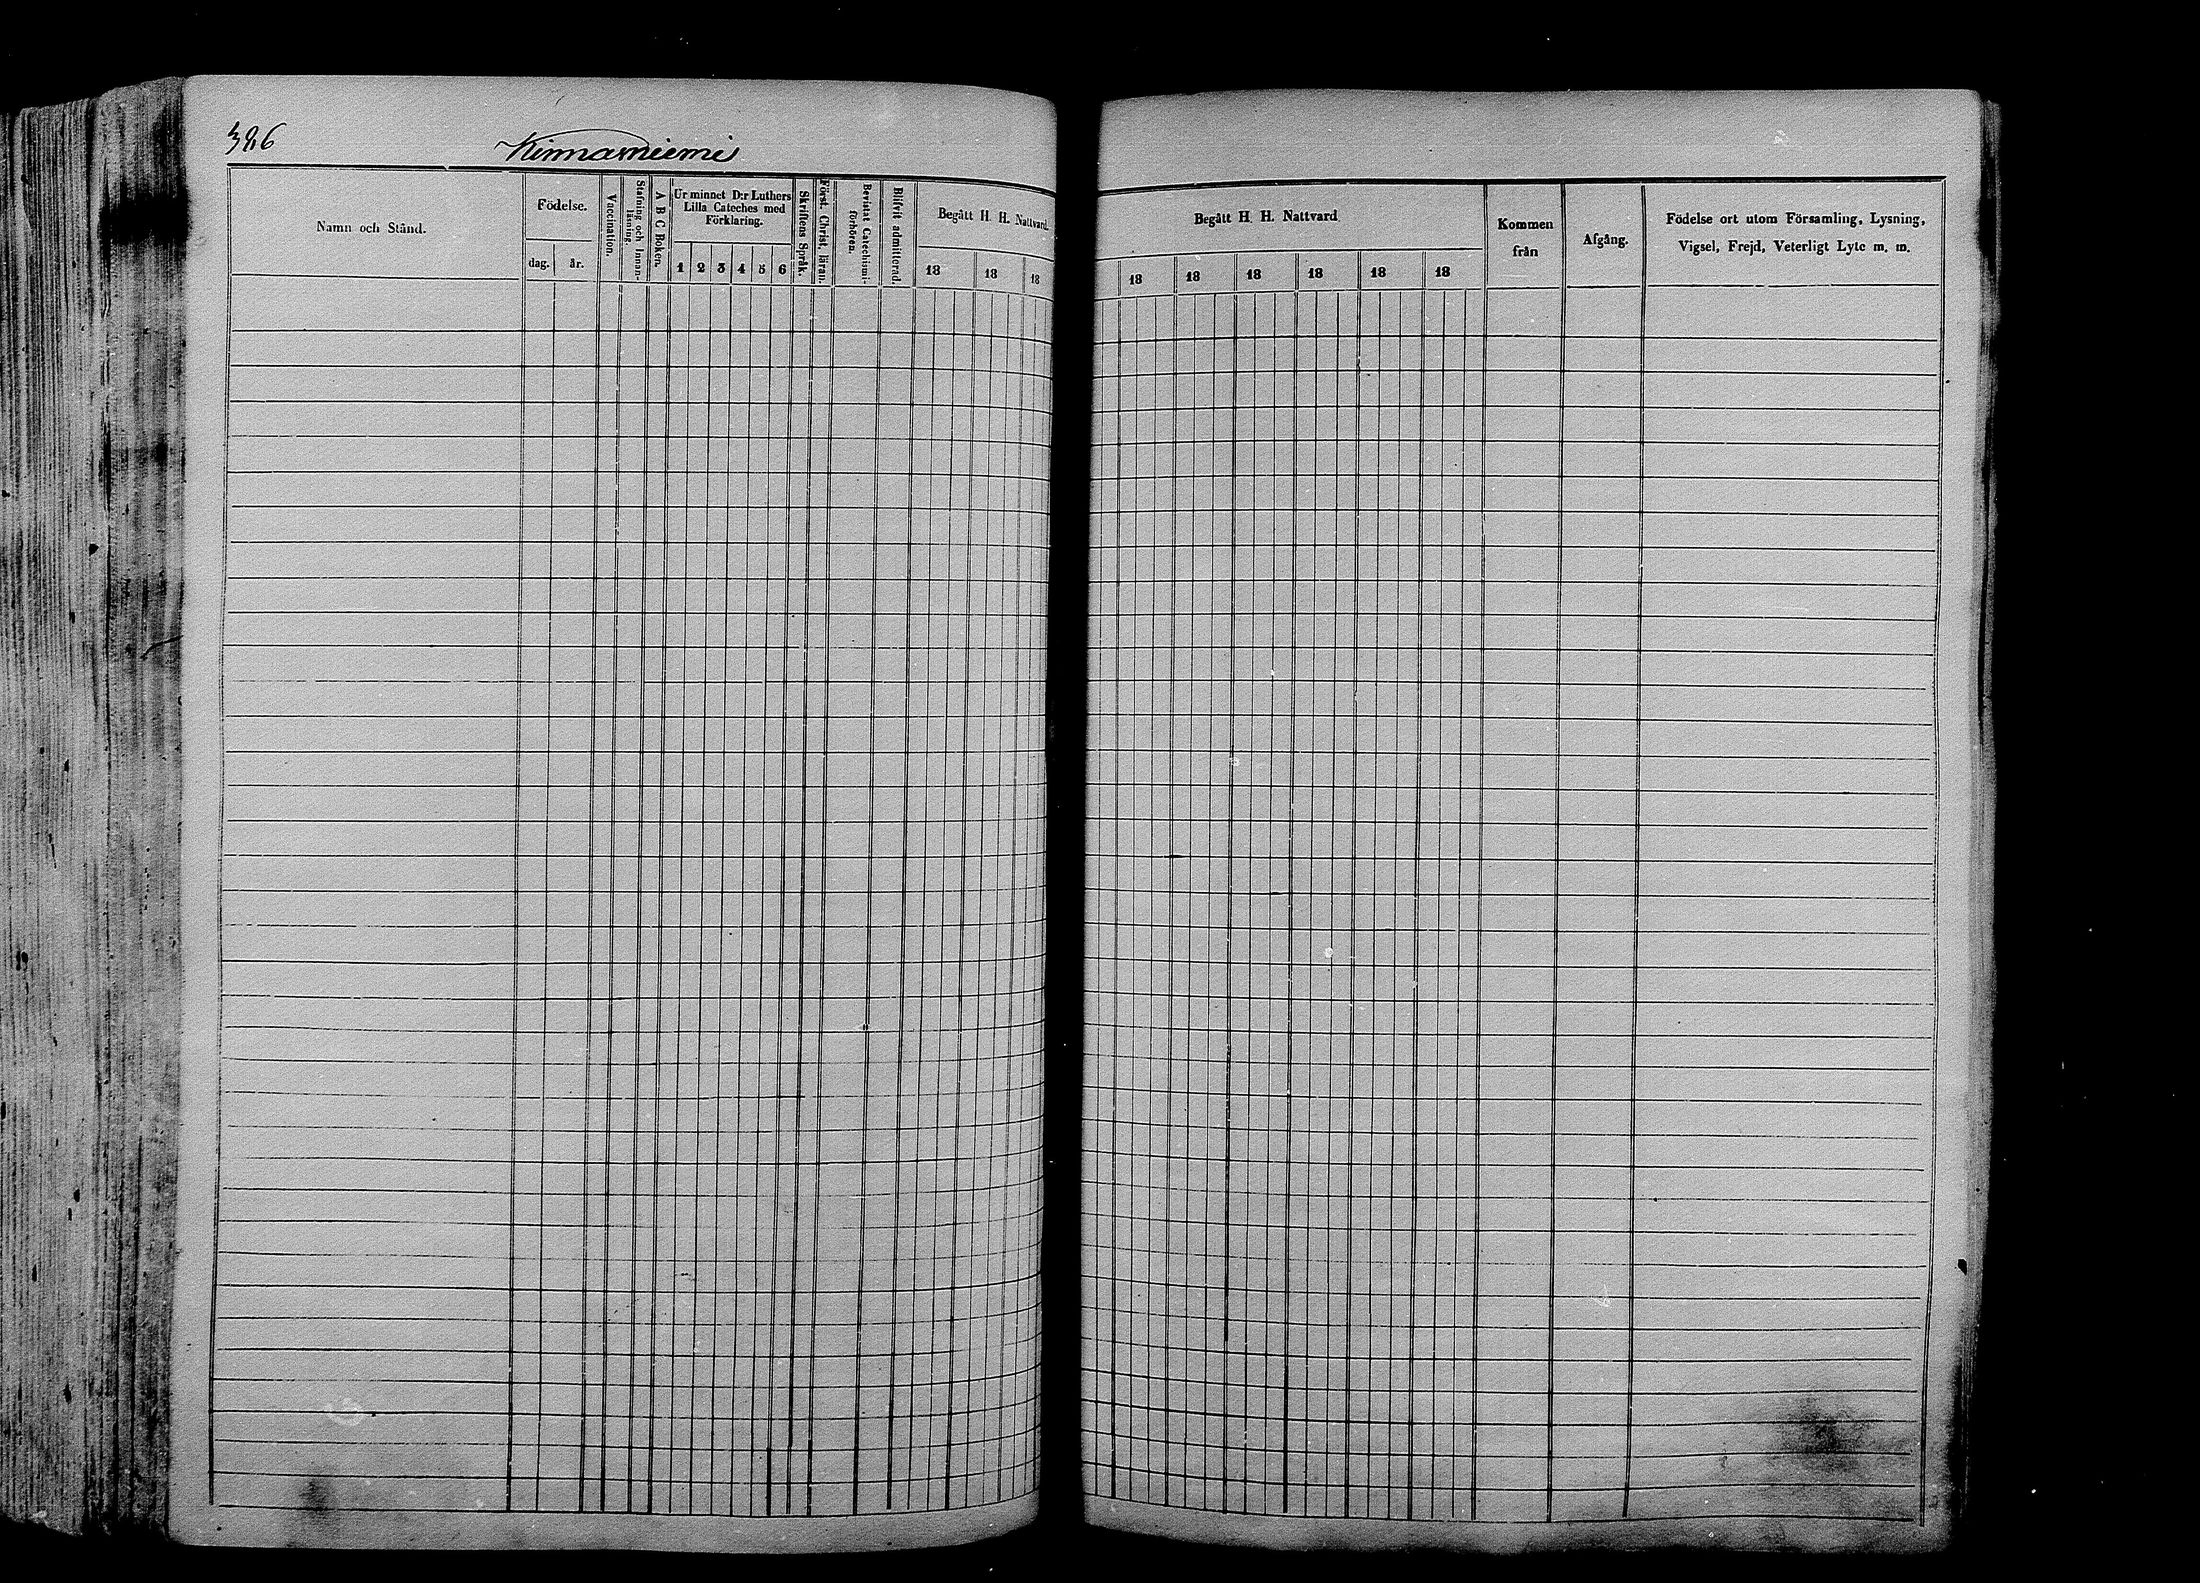 386
Kinnarniemi
Namn och Stånd.
Födelse.
dag. år.
Vaccination.
Stafning och Innan-
läsning.
A B C Boken.
Ur minnet D:r Luthers
Lilla Cateches med
Förklaring.
1 2 3 4 5 6
Skriftens Språk.
Först. Christ. läran.
Bevistat Catechismi-
förhören.
Blifvit admitterad.
Begått H. H. Nattvard.
18 18 18
Begått H. H. Nattvard
18 18 18 18 18 18
Kommen
från
Afgång.
Födelse ort utom Församling, Lysning,
Vigsel, Frejd, Veterligt Lyte m. m.